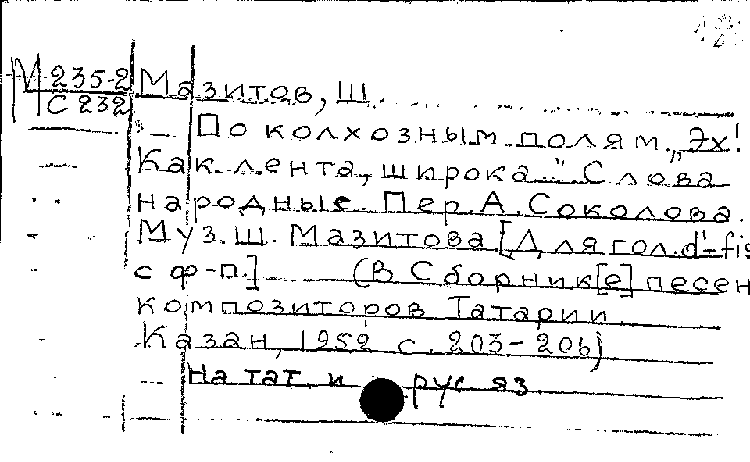 М 235-2 Мазитов, Ш.
С 232
По колхозным полям. „Эх!
Как лента, широка..." Слова
народные. Пер. А. Соколова.
Муз. Ш. Мазитова [Для гол. d'-fis
с ф-п.] (В Сборник[е] песен
композиторов Татарии.
Казан, 1952 с. 203-206)
На тат. и рус яз.